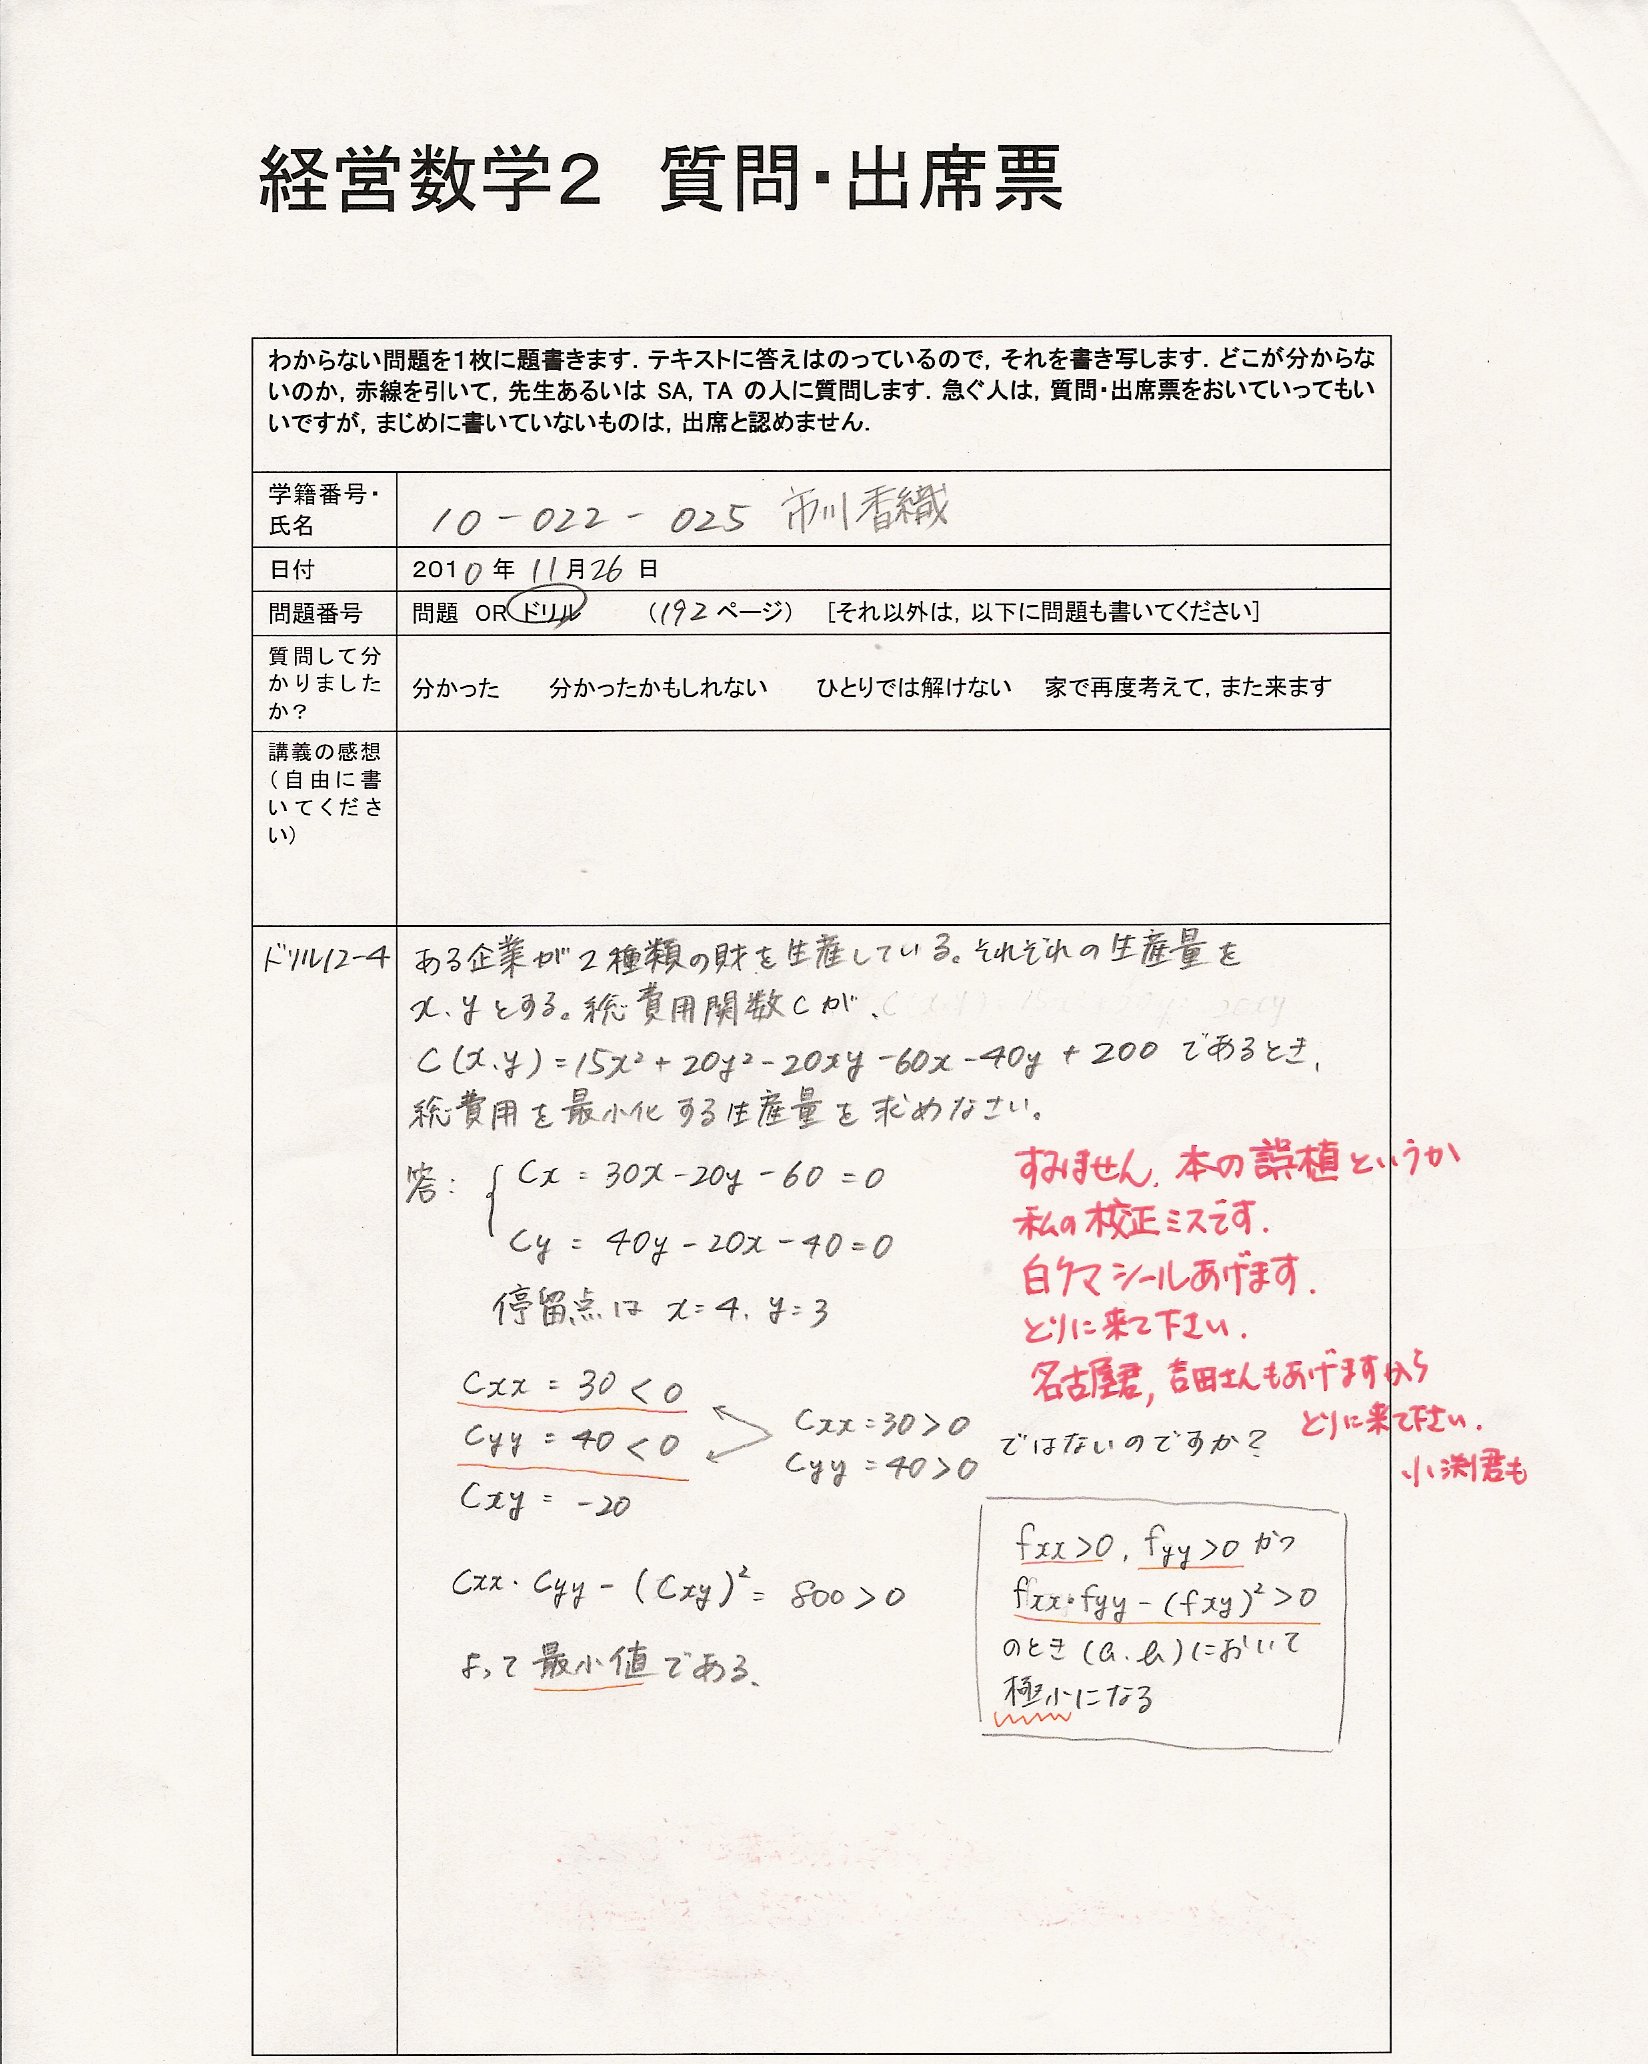 経営数学2 質問・出席票
わからない問題を1枚に題書きます．テキストに答えはのっているので，それを書き写します．どこが分からな
いのか，赤線を引いて，先生あるいは SA，TA の人に質問します．急ぐ人は，質問・出席票をおいていってもい
いですが，まじめに書いていないものは，出席と認めません．
学籍番号・
氏名
10-022-025 市川香織
日付
2010年 11月26日
問題番号
問題 OR ドリル （192ページ） [それ以外は，以下に問題も書いてください]
質問して分
かりました
か？
分かった 分かったかもしれない ひとりでは解けない 家で再度考えて，また来ます
講義の感想
（自由に書
いてくださ
い）
ドリル12-4
ある企業が2種類の財を生産している。それぞれの生産量を
x、yとする。総費用関数Cが、
C(x、y)=15x²+20y²-20xy-60x-40y+200 であるとき、
総費用を最小化する生産量を求めなさい。
答：
Cx = 30x-20y-60=0
Cy = 40y-20x-40=0
停留点は x=4、y=3
Cxx = 30<0
Cyy = 40<0
Cxy = -20
Cxx=30>0
Cyy=40>0
ではないのですか？
Cxx・Cyy-(Cxy)²=800>0
よって最小値である、
すみません，本の誤植というか
私の校正ミスです．
白クマシールあげます．
とりに来て下さい．
名古屋君，吉田さんもあげますから
とりに来て下さい．
小渕君も
fxx>0、fyy>0 かつ
fxx・fyy-(fxy)²>0
のとき(a、b)において
極小になる